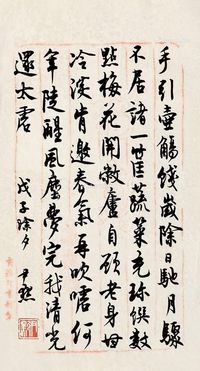 手引壺觴餞歲除日馳月驟
不居諸一筐蔬菜充珍饌數
點梅花開敝廬自顧老身毋
冷淡肯邀春氣再吹噓何
年陡醒風塵夢完我清光
還太虛
戊子除夕 尹默